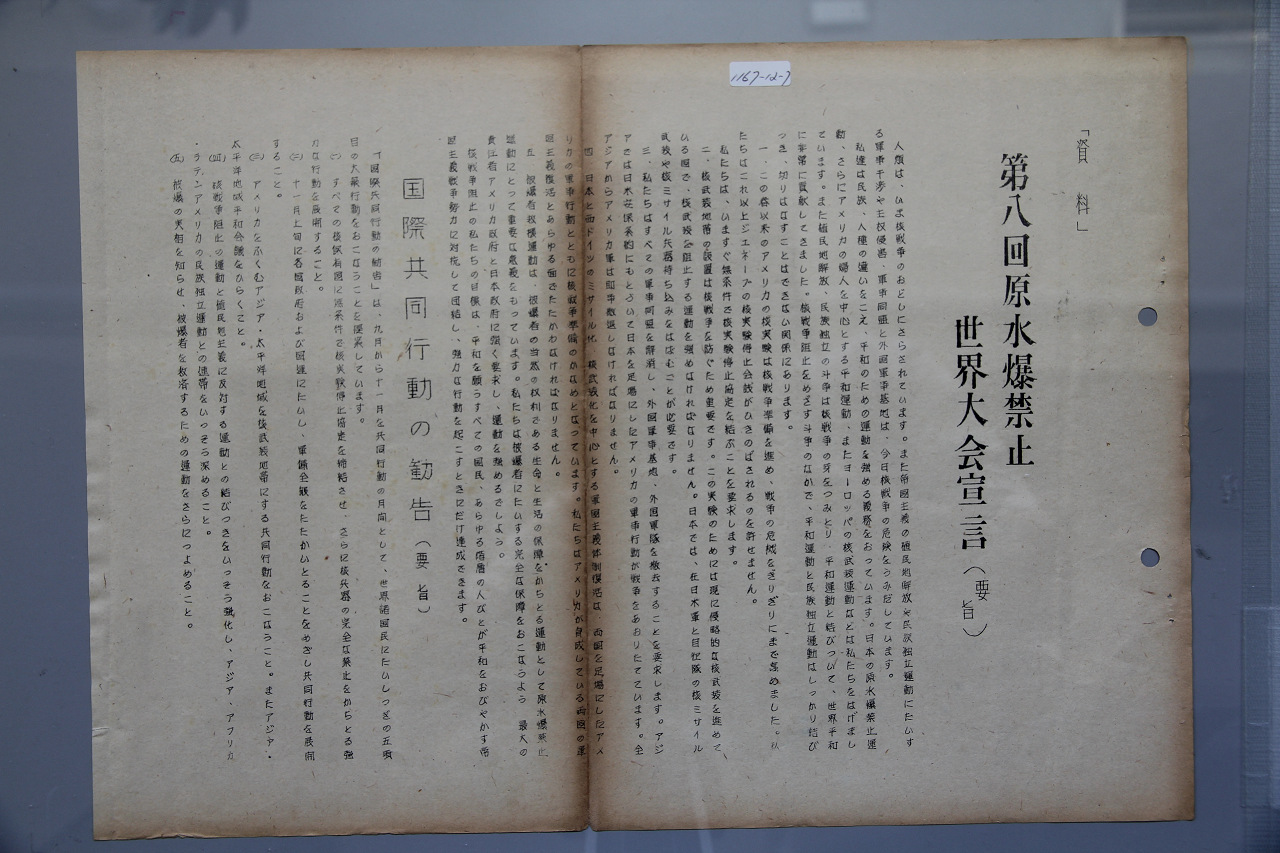 1167-12-7
「資料」
第八回原水爆禁止
世界大会宣言(要旨)
人類は、いま核戦争のおどしにさらされています。また帝国主義の植民地解放や民族独立運動にたいす
る軍事干渉や主権侵害、軍事同盟と外国軍事基地は、今日核戦争の危険をうみだしています。
私達は民族、人種の違いをこえ、平和のための運動を強める義務をおっています。日本の原水爆禁止運
動、さらにアメリカの婦人を中心とする平和運動、またヨーロッパの核武装運動などは私たちをはげまし
ています。また植民地解放、民族独立の斗争は核戦争の牙をつみとり、平和運動と結びついて、世界平和
に非常に貢献してきました。核戦争阻止をめざす斗争のなかで、平和運動と民族独立運動はしっかり結び
つき、切りはなすことはできない関係にあります。
一、この春以来のアメリカの核実験は核戦争準備を進め、戦争の危機をぎりぎりにまで高めました。私
たちはこれ以上ジュネーブの核実験停止会議がひきのばされるのを許せません。
私たちは、いますぐ無条件で核実験停止協定を結ぶことを要求します。
二、核武装地帯の設置は核戦争を防ぐため重要です。この実験のためには現に侵略的な核武装を進めて
いる国で、核武装を阻止する運動を強めなければなりません。日本では、在日米軍と自衛隊の核ミサイル
武装や核ミサイル兵器持ち込みをはばむことが必要です。
三、私たちはすべての軍事同盟を解消し、外国軍事基地、外国軍隊を撤去することを要求します。アジ
アでは日米安保条約にもとづいて日本を足場にしたアメリカの軍事行動が戦争をあおりたてています。全
アジアからアメリカ軍は即時撤退しなければなりません。
四、日本と西ドイツのミサイル化、核武装化を中心とする軍国主義体制復活は、両国を足場にしたアメ
リカの軍事行動とともに核戦争準備のかなめとなっています。私たちはアメリカが育成している両国の軍
国主義復活とあらゆる面でたたかわなければなりません。
五、被爆者救援運動は、被爆者の当然の権利である生命と生活の保障をかちとる運動として原水爆禁止
運動にとって重要な意義をもっています。私たちは被爆者にたいする完全な保障をおこなうよう、最大の
責任者アメリカ政府と日本政府に強く要求し、運動を強めるでしよう。
核戦争阻止の私たちの目標は、平和を願うすべての国民、あらゆる階層の人びとが平和をおびやかす帝
国主義戦争勢力に対抗して団結し、強力な行動を起こすときにだけ達成できます。
国際共同行動の勧告(要旨)
「国際共同行動の勧告」は、九月から十一月を共同行動の月間として、世界諸国民にたいしつぎの五項
目の大衆行動をおこなうことを提案しています。
(一) すべての核保有国に無条件で核実験停止協定を締結させ、さらに核兵器の完全な禁止をかちとる強
力な行動を展開すること。
(二) 十一月上旬に各国政府および国連にたいし、軍備全廃をたたかいとることをめざし共同行動を展開
すること。
(三) アメリカをふくむアジア・太平洋地域を核武装地帯にする共同行動をおこなうこと。またアジア・
太平洋地域平和会議をひらくこと。
(四) 核戦争阻止の運動と植民地主義に反対する運動との結びつきをいっそう強化し、アジア、アフリカ
・ラテンアメリカの民族独立運動との連帯をいっそう深めること。
(五) 被爆の実相を知らせ、被爆者を救済するための運動をさらにつよめること。